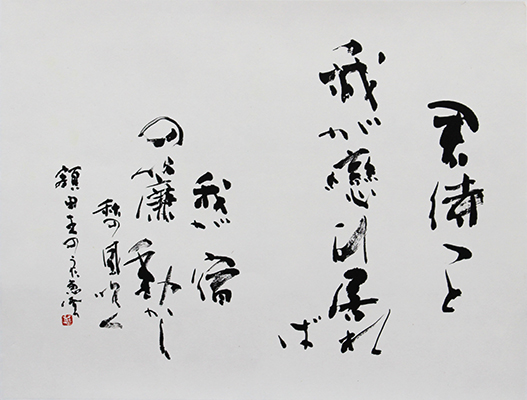 君待つと
我が戀ひ居れば
我が宿
の簾動かし
秋の風吹く
額田王のうた